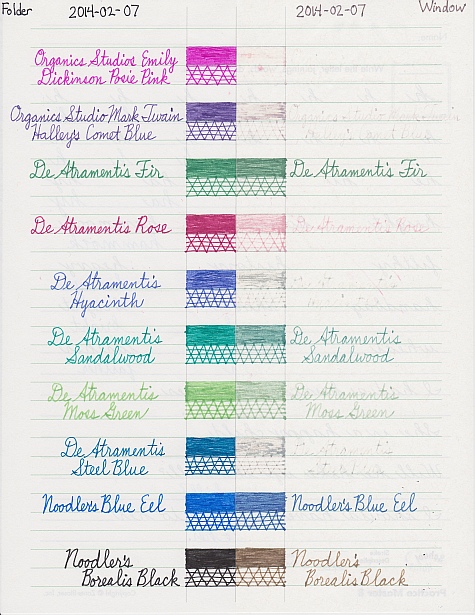 Folder 2014-02-07 2014-02-07 Window
Organics Studios Emily
Dickinson Posie Pink
Organics Studio Mark Twain Organics Studio Mark Twain
Halley's Comet Blue Halley's Comet Blue
De Atramentis Fir De Atramentis Fir
De Atramentis Rose De Atramentis Rose
De Atramentis
Hyacinth
De Atramentis De Atramentis
Sandalwood Sandalwood
De Atramentis De Atramentis
Moss Green Moss Green
De Atramentis De Atramentis
Steel Blue Steel Blue
Noodler's Blue Eel Noodler's Blue Eel
Noodler's Noodler's
Borealis Black Borealis Black